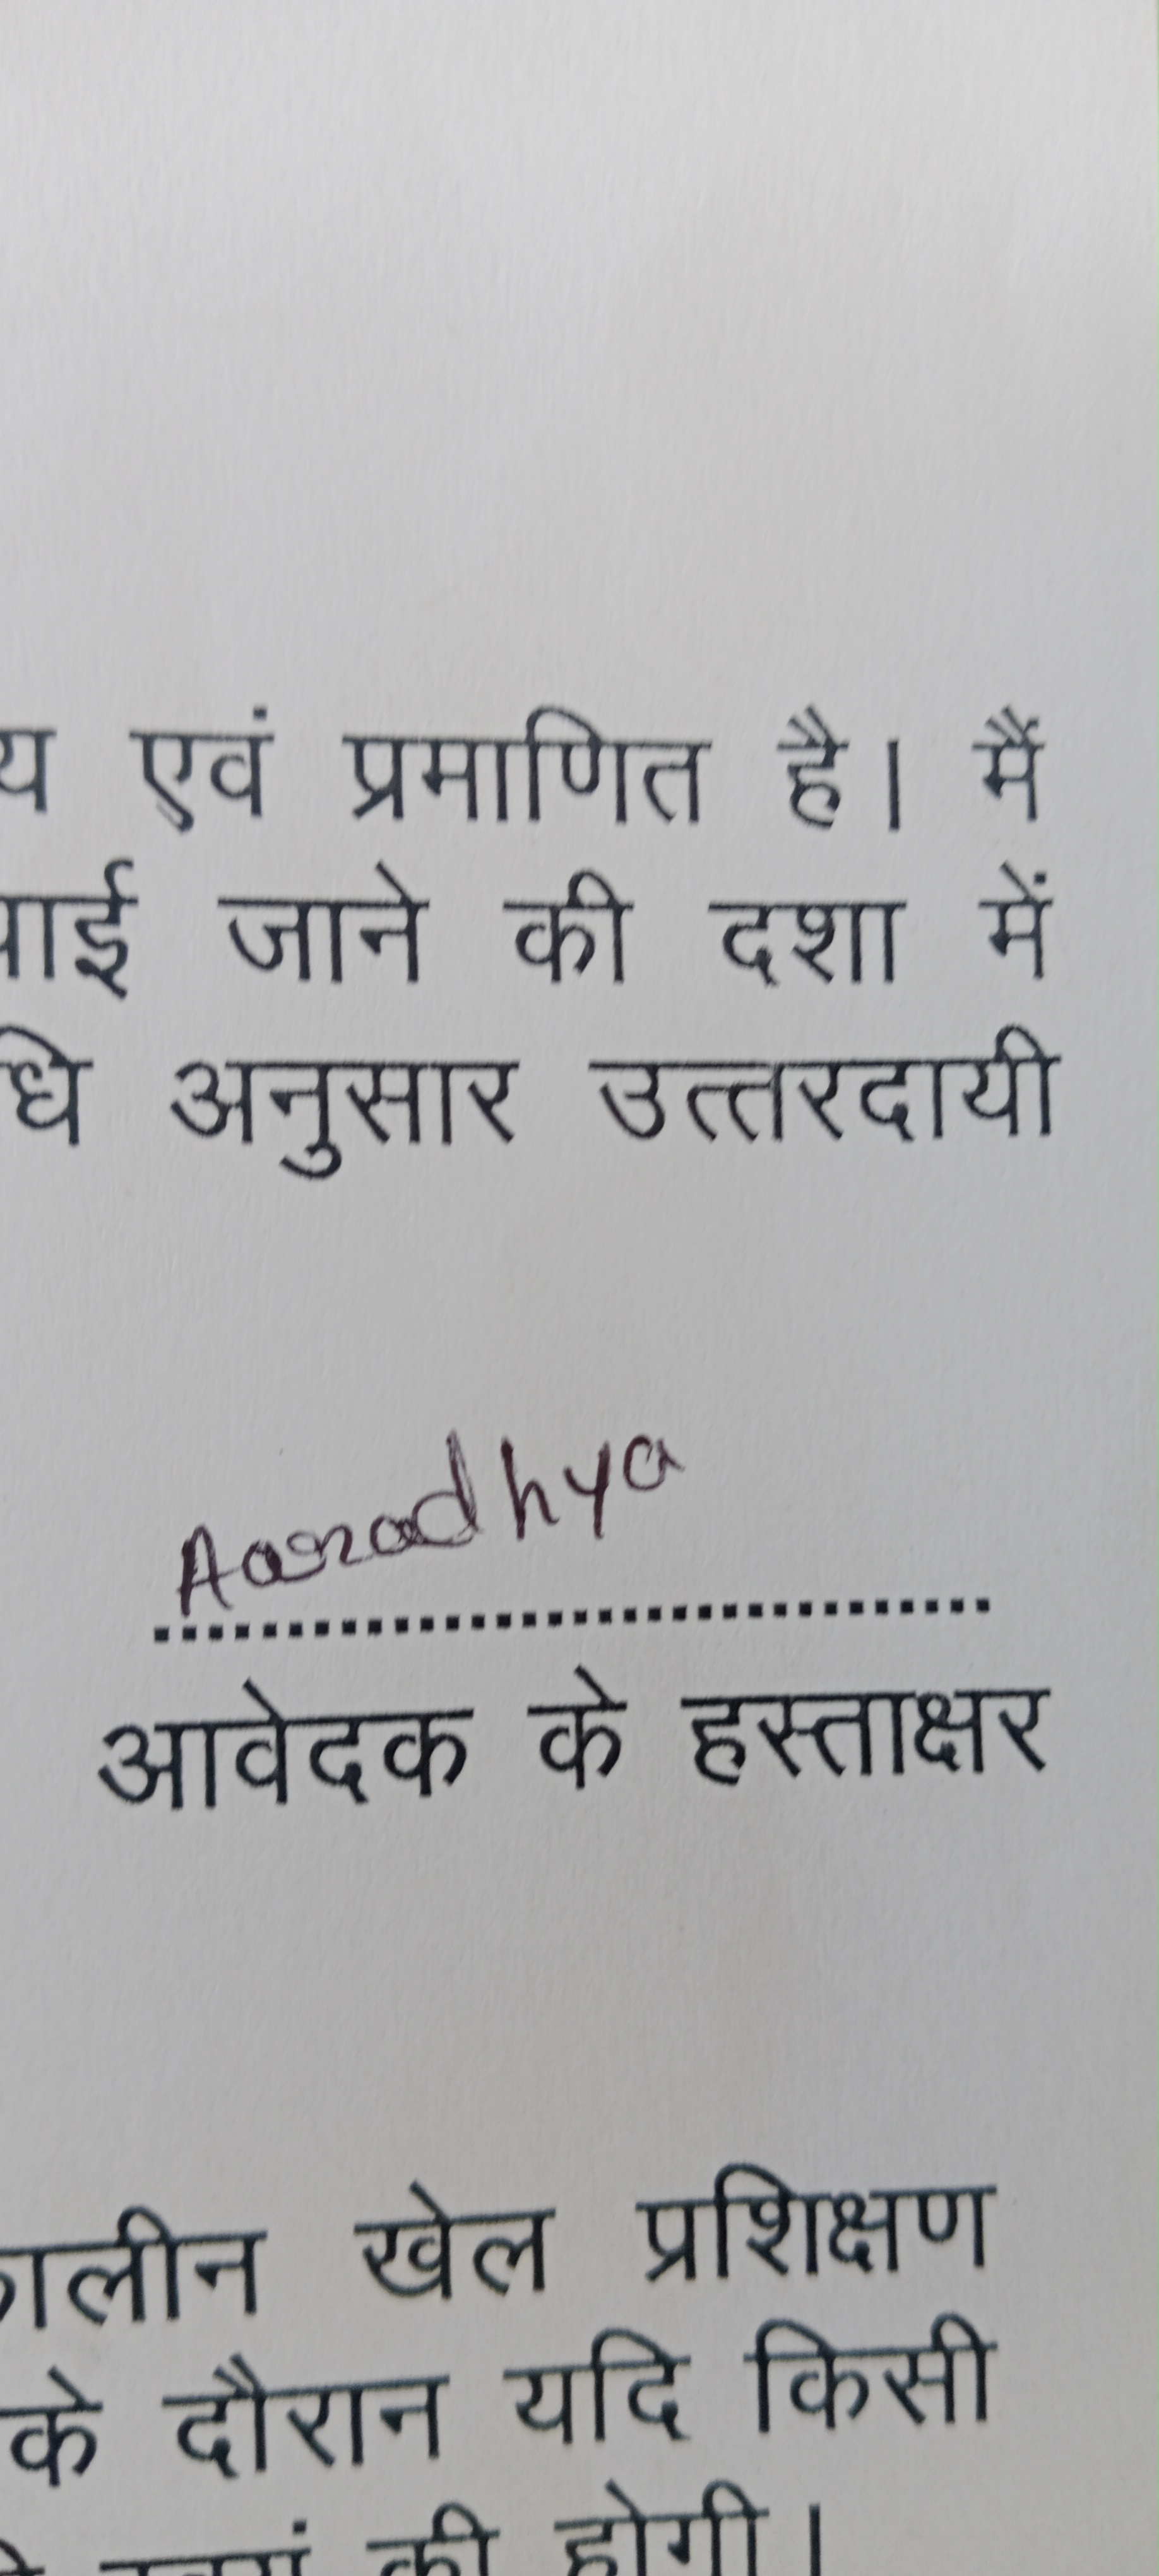 य एवं प्रमाणित है। मैं
पाई जाने की दशा में
धि अनुसार उत्तरदायी
Aaradhya
आवेदक के हस्ताक्षर
लीन खेल प्रशिक्षण
के दौरान यदि किसी
की होगी।